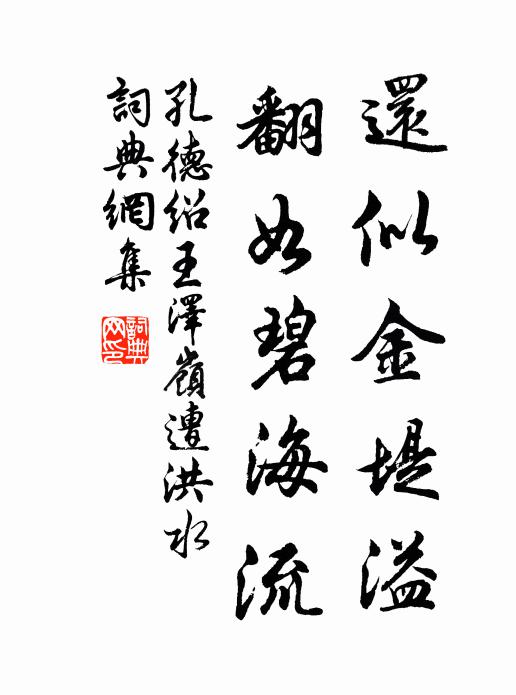 還似金堤溢
翻如碧海流
孔德绍王澤嶺遭洪水
詞典網集
詞典网印